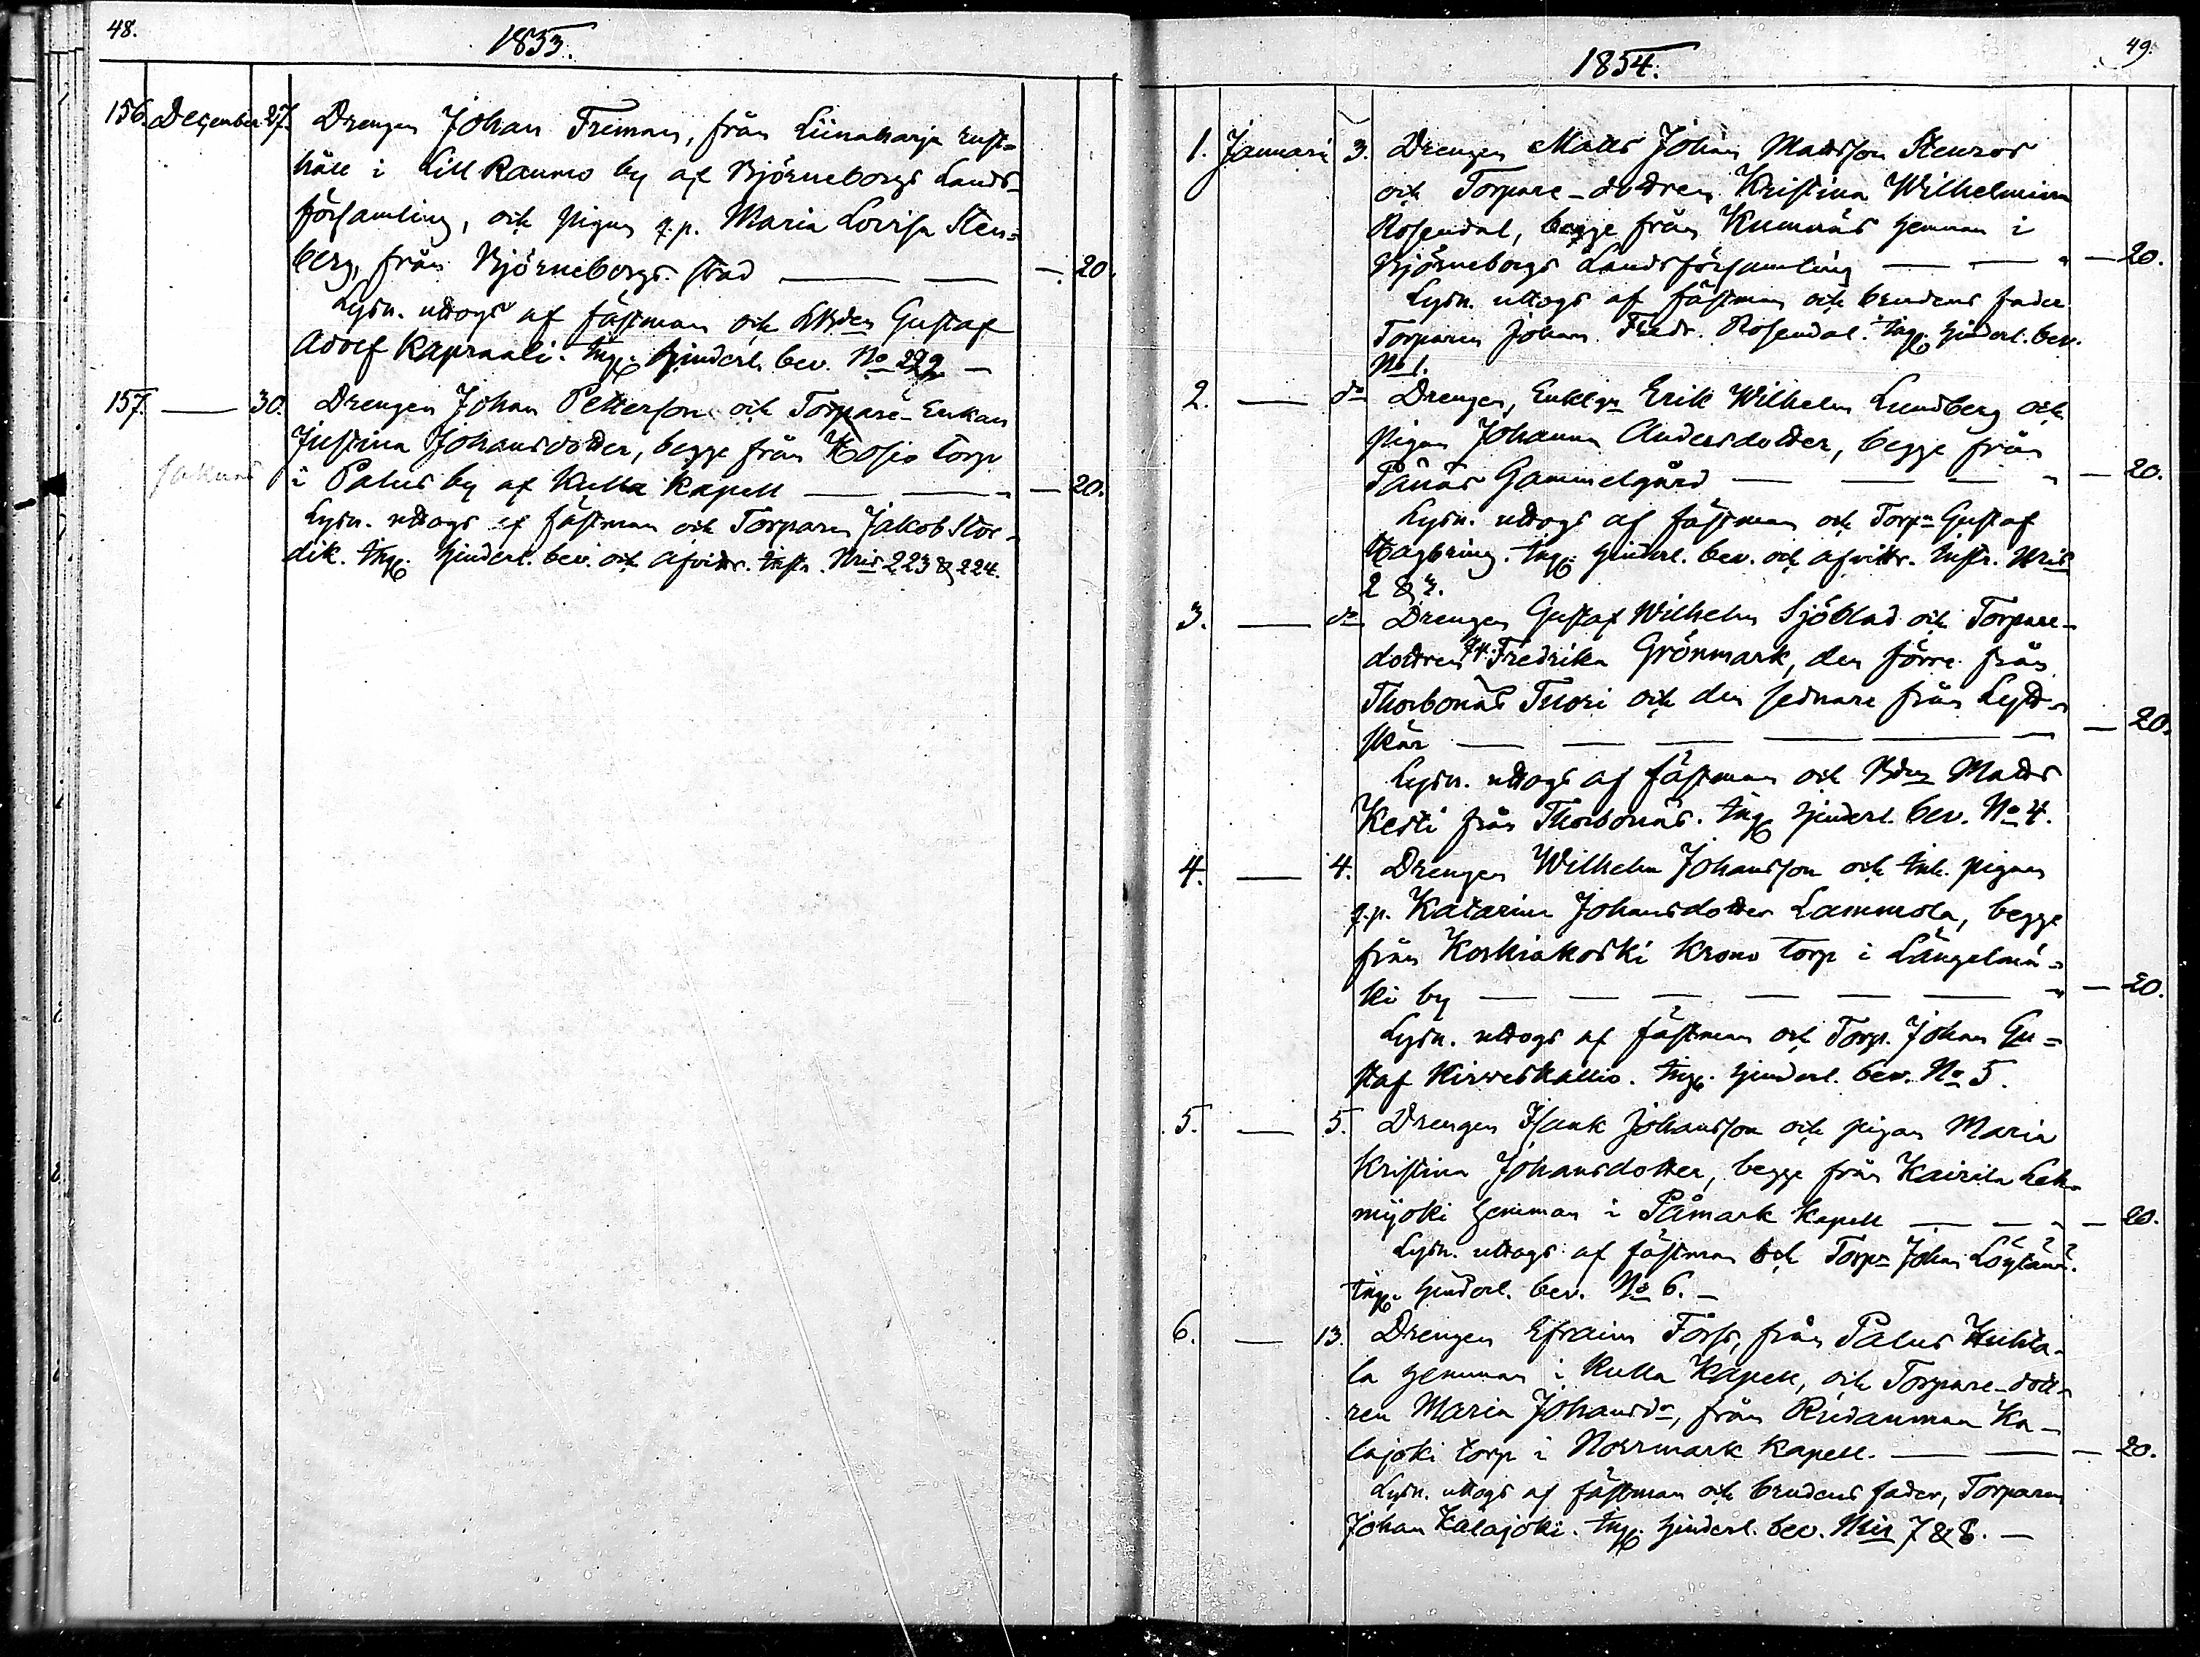 48.
1853.
156. December 27. Drengen Johan Friman, från Liinaharja rust-
håll i Lill Raumo by af Björneborgs Lands-
församling, och pigan q.p. Maria Lovisa Sten-
berg, från Björneborgs stad — — — 20.
Lysn. uttogs af fästman och Gustaf
Adolf Kapraali. Ing. hinderl. bev. No 222 —
157. — 30. Drengen Johan Petterson och Torpare-Enkan
Justina Johansdotter, begge från Kosio torp
i Palus by af Kulla Kapell — — — 20.
Lysn. uttogs af fästman och Torparen Jakob Stor-
dik. Ing. hinderl. bev. och afvittr. instr. Nris 223 & 224.
49.
1854.
1. Januari 3. Drengen Matts Johan Mattsson Stenros
och Torpare-dottren Kristina Wilhelmina
Rosendal, begge från Kumnäs hemman i
Björneborgs Landsförsamling — — — 20.
Lysn. uttogs af fästman och brudens fader
Torparen Johan Fredr. Rosendal. Ing. hinderl. bev.
No 1.
2. — do Drengen, Enkl:gn Erik Wilhelm Lundberg och
pigan Johanna Andersdotter, begge från
Pånäs Gammelgård — — — 20.
Lysn. uttogs af fästman och Torp:n Gustaf
Hagbring. Ing. hinderl. bev. och afvittr. instr. Nris
2 & 3.
3. — do Drengen Gustaf Wilhelm Sjöblad och Torpare-
dottren Fredrika Grönmark, den förre från
Thorbonäs Tuori och den sednare från Lyse-
skär — — — — 20.
Lysn. uttogs af fästman och Bden Matts
Kesti från Thorbonäs. Ing. hinderl. bev. No 4.
4. — 4. Drengen Wilhelm Johansson och inh. pigan
q.p. Katarina Johansdotter Lammola, begge
från Koskiakoski Krono torp i Längelmä-
ki by — — — — — — 20.
Lysn. uttogs af fästman och Torp. Johan Gu-
staf Kirweskallio. Ing. hinderl. bev. No 5.
5. — 5. Drengen Isaak Johansson och pigan Maria
Kristina Johansdotter, begge från Kairila Leh-
mijoki hemman i Påmark Kapell — — — 20.
Lysn. uttogs af fästman och Torp:n Johan Löytänä.
Ing. hinderl. bev. No 6. —
6. — 13. Drengen Efraim Forss, från Palus Huhta-
la hemman i Kulla Kapell, och Torpare-dott-
ren Maria Johansdr, från Ridanmaa Ka-
lajoki torp i Norrmark Kapell. — — — 20.
Lysn. uttogs af fästman och brudens fader, Torparen
Johan Kalajoki. Ing. hinderl. bev. Nris 7 & 8. —